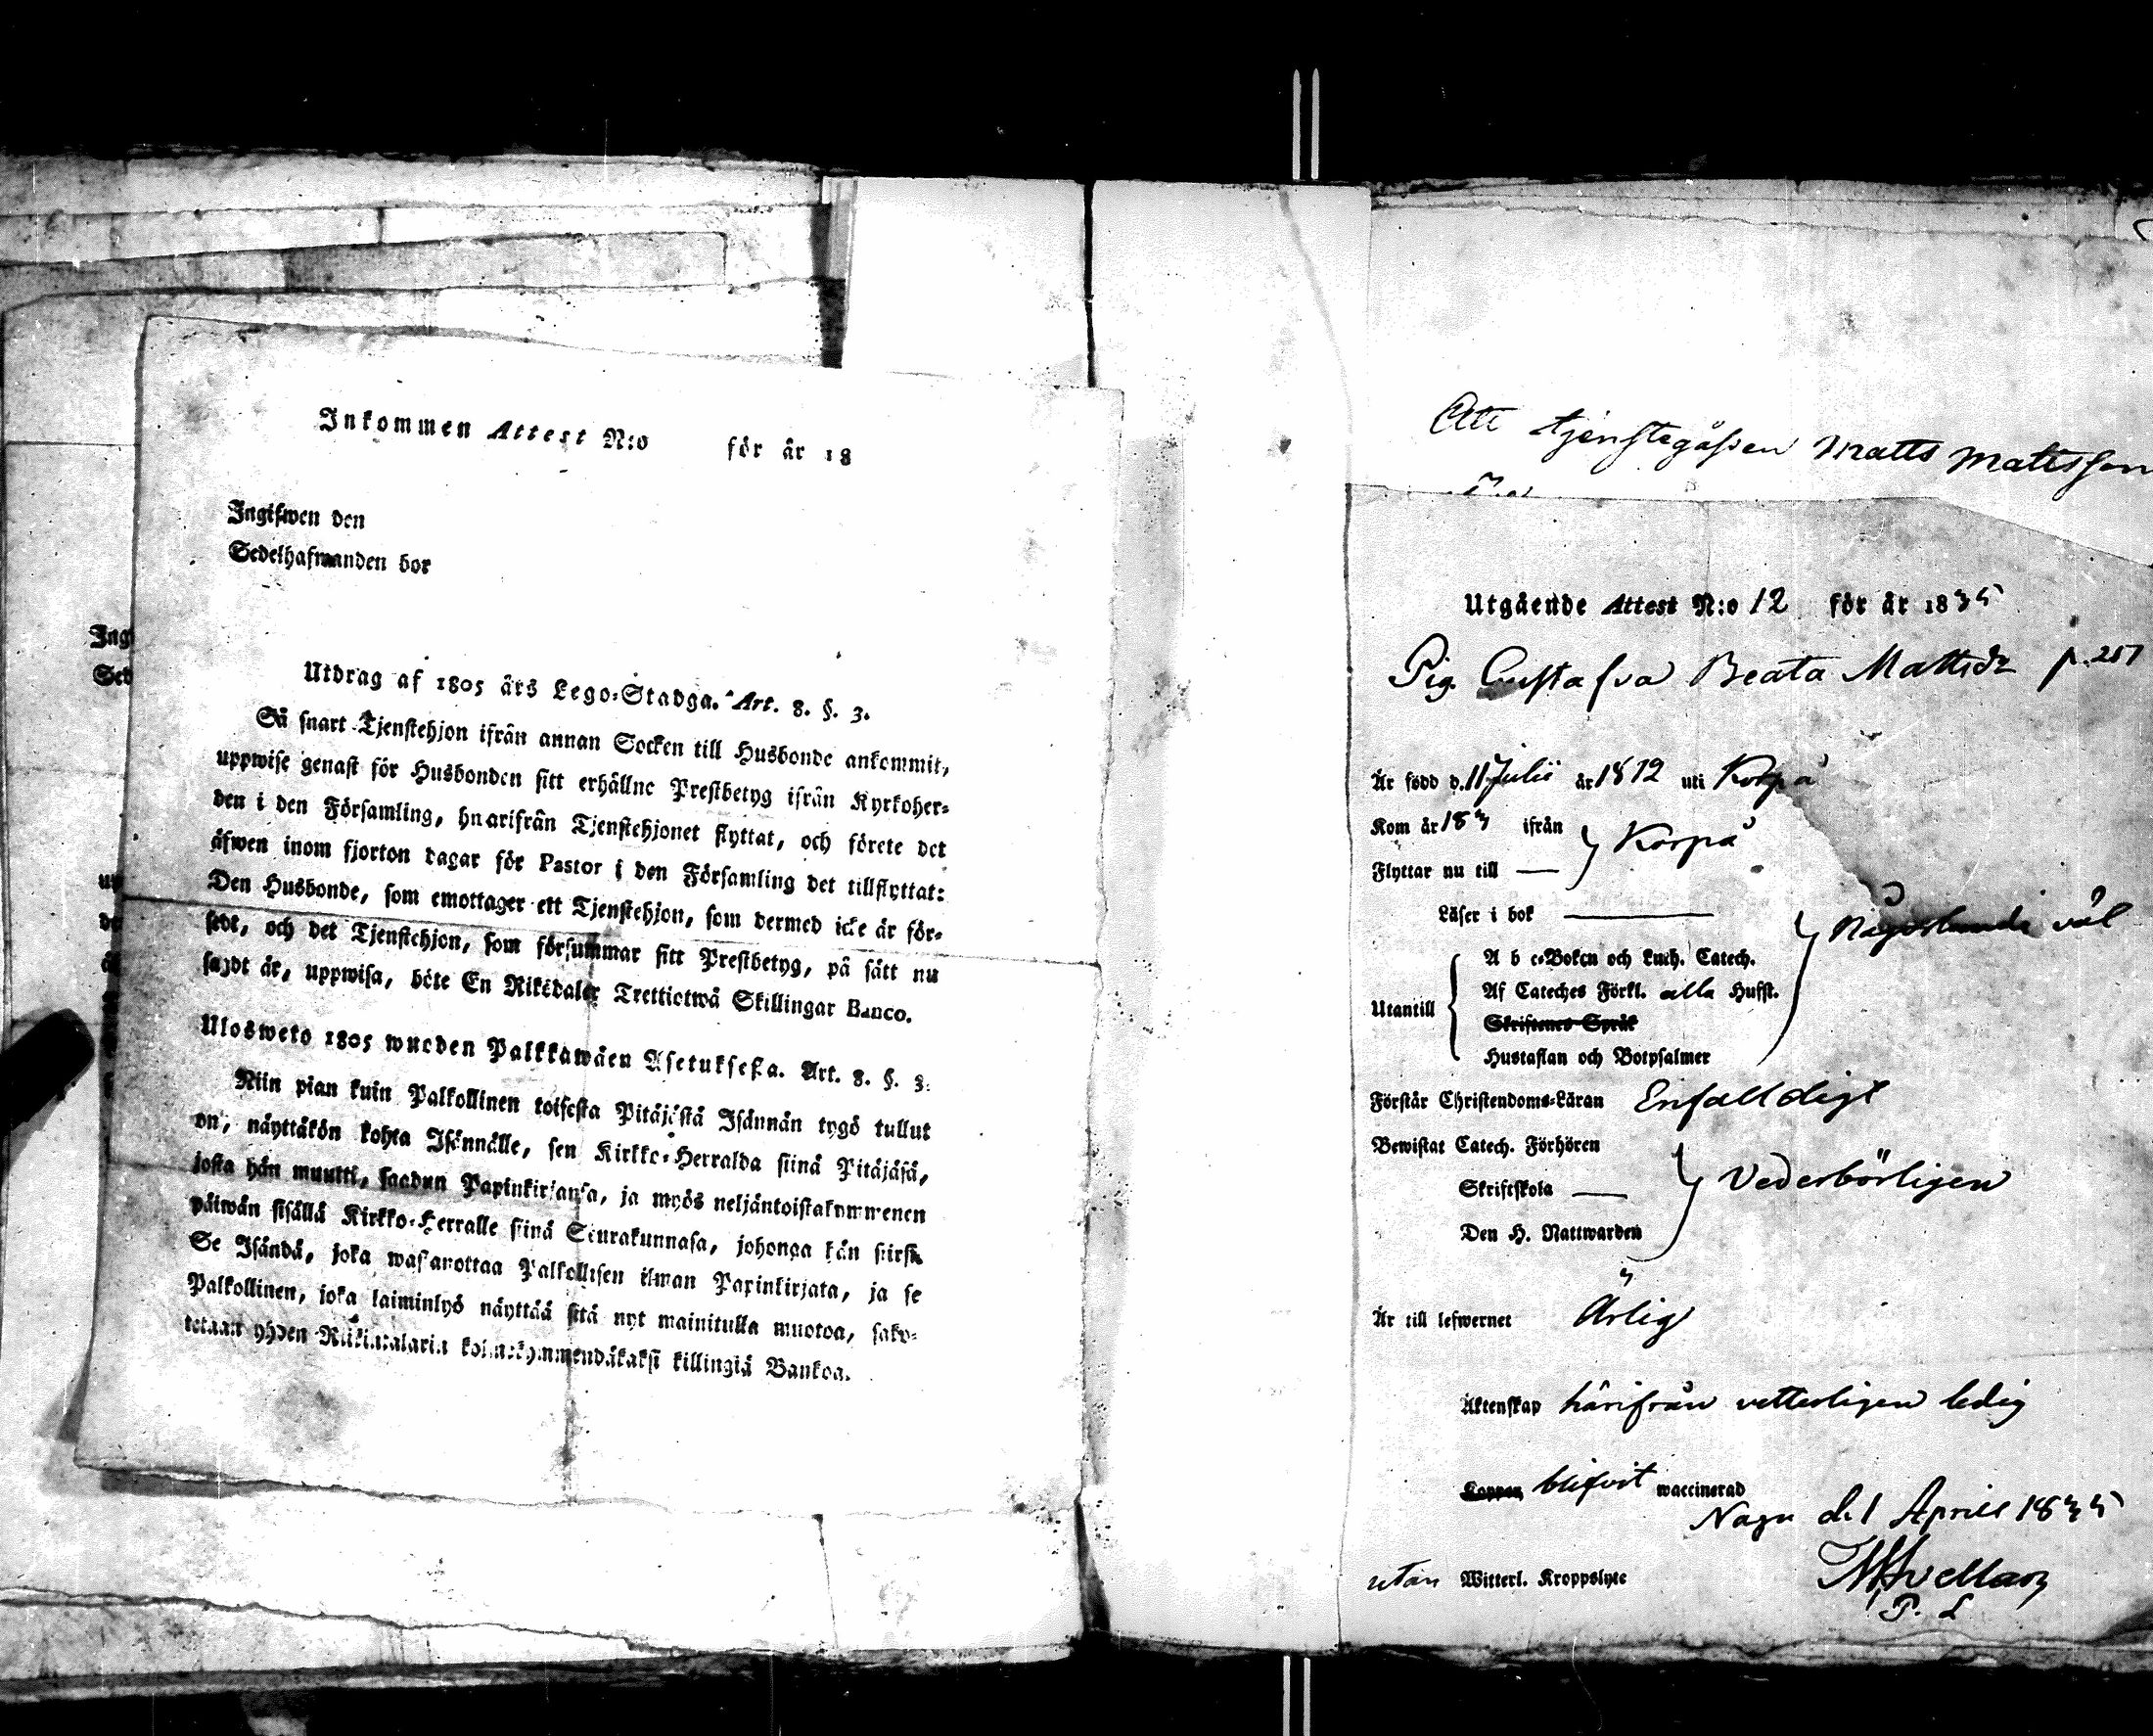 Inkommen Attest N:o för år 18
Ingifwen den
Sedelhafwanden bor
Utdrag af 1805 års Lego-Stadga. Art. 8. §. 3.
Så snart Tjenstehjon ifrån annan Socken till Husbonde ankommit,
uppwise genast för Husbonden sitt erhållne Prestbetyg ifrån Kyrkoher-
den i den Församling, hvarifrån Tjenstehjonet flyttat, och förete det
äfwen inom fjorton dagar för Pastor i den Församling det tillflyttat:
Den Husbonde, som emottager ett Tjenstehjon, som dermed icke är för-
sedt, och det Tjenstehjon, som försummar sitt Prestbetyg, på sätt nu
sagdt är, uppwisa, böte En Riksdaler Trettiotwå Skillingar Banco.
Ulosweto 1805 wuoden Palkkawäen Asetuksesta. Art. 8. §. 3.
Niin pian kuin Palkollinen toisesta Pitäjästä Isännän tygö tullut
on, näyttäkön kohta Isännälle, sen Kirkko-Herralda siinä Pitäjäsä,
josta hän muutti, saadun Papinkirjansa, ja myös neljäntoistakymmenen
päiwän sisällä Kirkko-Herralle siinä Seurakunnasa, johonga hän siirsi.
Se Isändä, joka wastanottaa Palkollisen ilman Papinkirjata, ja se
Palkollinen, joka laiminlyö näyttää sitä nyt mainitulla muotoa, sako-
tetaan yhden Riikintalarin kolmekymmendäkaksi killingiä Bankoa.
Ing
Sed
Att tjenstegåssen Matts Mattsson
Utgående Attest N:o 12 för år 1835
Pig. Gustafva Beata Mattsdr p. 257
Är född d. 11 Julii år 1812 uti Korpå
Kom år 183 ifrån
Korpå
Flyttar nu till —
Läser i bok —
Någorlunda väl
A b c-Boken och Luth. Catech.
Af Cateches Förkl. alla Hufst.
Utantill
Skriftenes Språk
Hustaflan och Botpsalmer
Förstår Christendoms-Läran Enfalldigt
Bewistat Catech. Förhören
Skriftskola —
Vederbörligen
Den H. Nattwarden
Är till lefwernet Ärlig
Äktenskap härifrån vetterligen ledig
Koppor blifvit waccinerad
Nagu d. 1 April 1835
utan Witterl. Kroppslyte
P. L